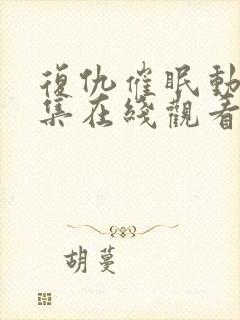 復仇催眠動
集在綫觀看
胡蔓